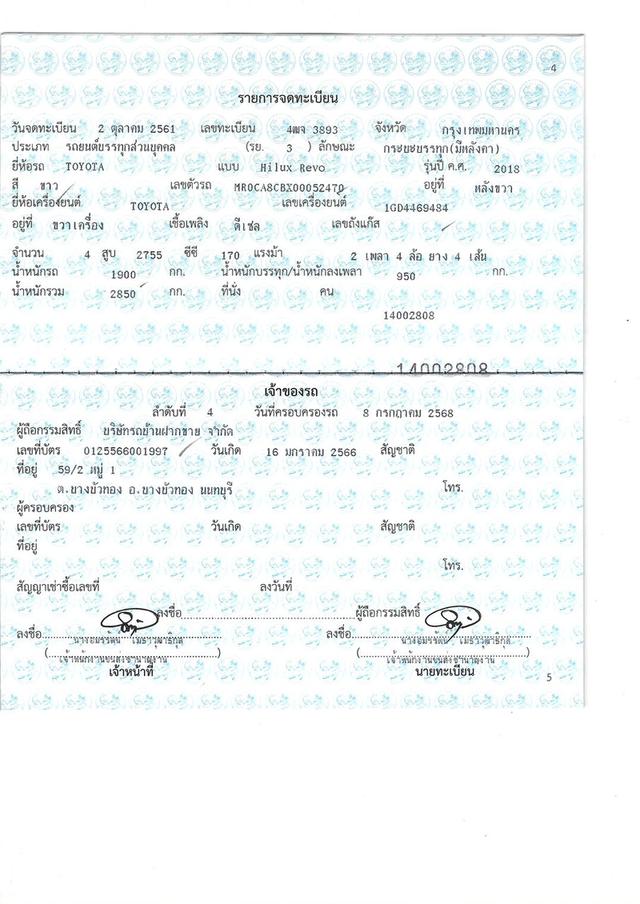 4
รายการจดทะเบียน
วันจดทะเบียน 2 ตุลาคม 2561 เลขทะเบียน 4ฒจ 3893 จังหวัด กรุงเทพมหานคร
ประเภท รถยนต์บรรทุกส่วนบุคคล (รย. 3 ) ลักษณะ กระบะบรรทุก(มีหลังคา)
ยี่ห้อรถ TOYOTA แบบ Hilux Revo รุ่นปี ค.ศ. 2018
สี ขาว เลขตัวรถ MR0CA8CBX00052470 อยู่ที่ หลังขวา
ยี่ห้อเครื่องยนต์ TOYOTA เลขเครื่องยนต์ 1GD4469484
อยู่ที่ ขวาเครื่อง เชื้อเพลิง ดีเซล เลขถังแก๊ส
จำนวน 4 สูบ 2755 ซีซี 170 แรงม้า 2 เพลา 4 ล้อ ยาง 4 เส้น
น้ำหนักรถ 1900 กก. น้ำหนักบรรทุก/น้ำหนักลงเพลา 950 กก.
น้ำหนักรวม 2850 กก. ที่นั่ง คน
14002808
14002808
เจ้าของรถ
ลำดับที่ 4 วันที่ครอบครองรถ 8 กรกฎาคม 2568
ผู้ถือกรรมสิทธิ์ บริษัทรถบ้านฝากขาย จำกัด
เลขที่บัตร 0125566001997 วันเกิด 16 มกราคม 2566 สัญชาติ
ที่อยู่ 59/2 หมู่ 1
ต.บางบัวทอง อ.บางบัวทอง นนทบุรี โทร.
ผู้ครอบครอง
เลขที่บัตร วันเกิด สัญชาติ
ที่อยู่
โทร.
สัญญาเช่าซื้อเลขที่ ลงวันที่
ลงชื่อ ผู้ถือกรรมสิทธิ์
ลงชื่อ ลงชื่อ
เจ้าพนักงานขนส่งชำนาญงาน เจ้าพนักงานขนส่งชำนาญงาน
เจ้าหน้าที่ นายทะเบียน
5